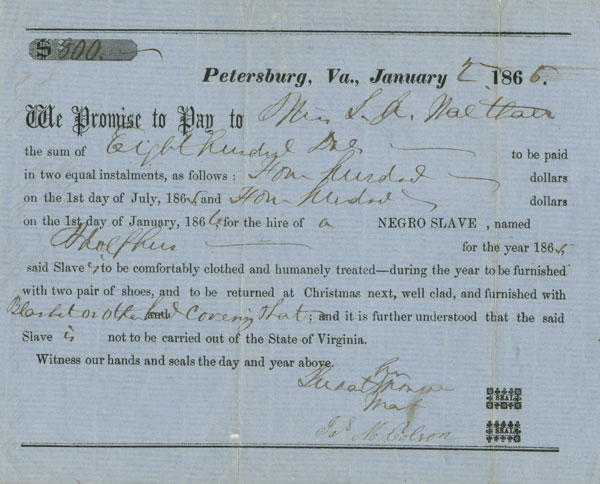 $ 800.
Petersburg, Va., January 2 1865.
We Promise to Pay to Miss S. A. Walthall
the sum of Eight hundred Dols to be paid
in two equal instalments, as follows: Four hundred dollars
on the 1st day of July, 1865, and Four hundred dollars
on the 1st day of January, 1866, for the hire of a NEGRO SLAVE, named
Adolphus for the year 1865,
said Slave is to be comfortably clothed and humanely treated—during the year to be furnished
with two pair of shoes, and to be returned at Christmas next, well clad, and furnished with
Blanket or other bed covering Hat; and it is further understood that the said
Slave is not to be carried out of the State of Virginia.
Witness our hands and seals the day and year above.
SEAL
Jas M. Colson
SEAL